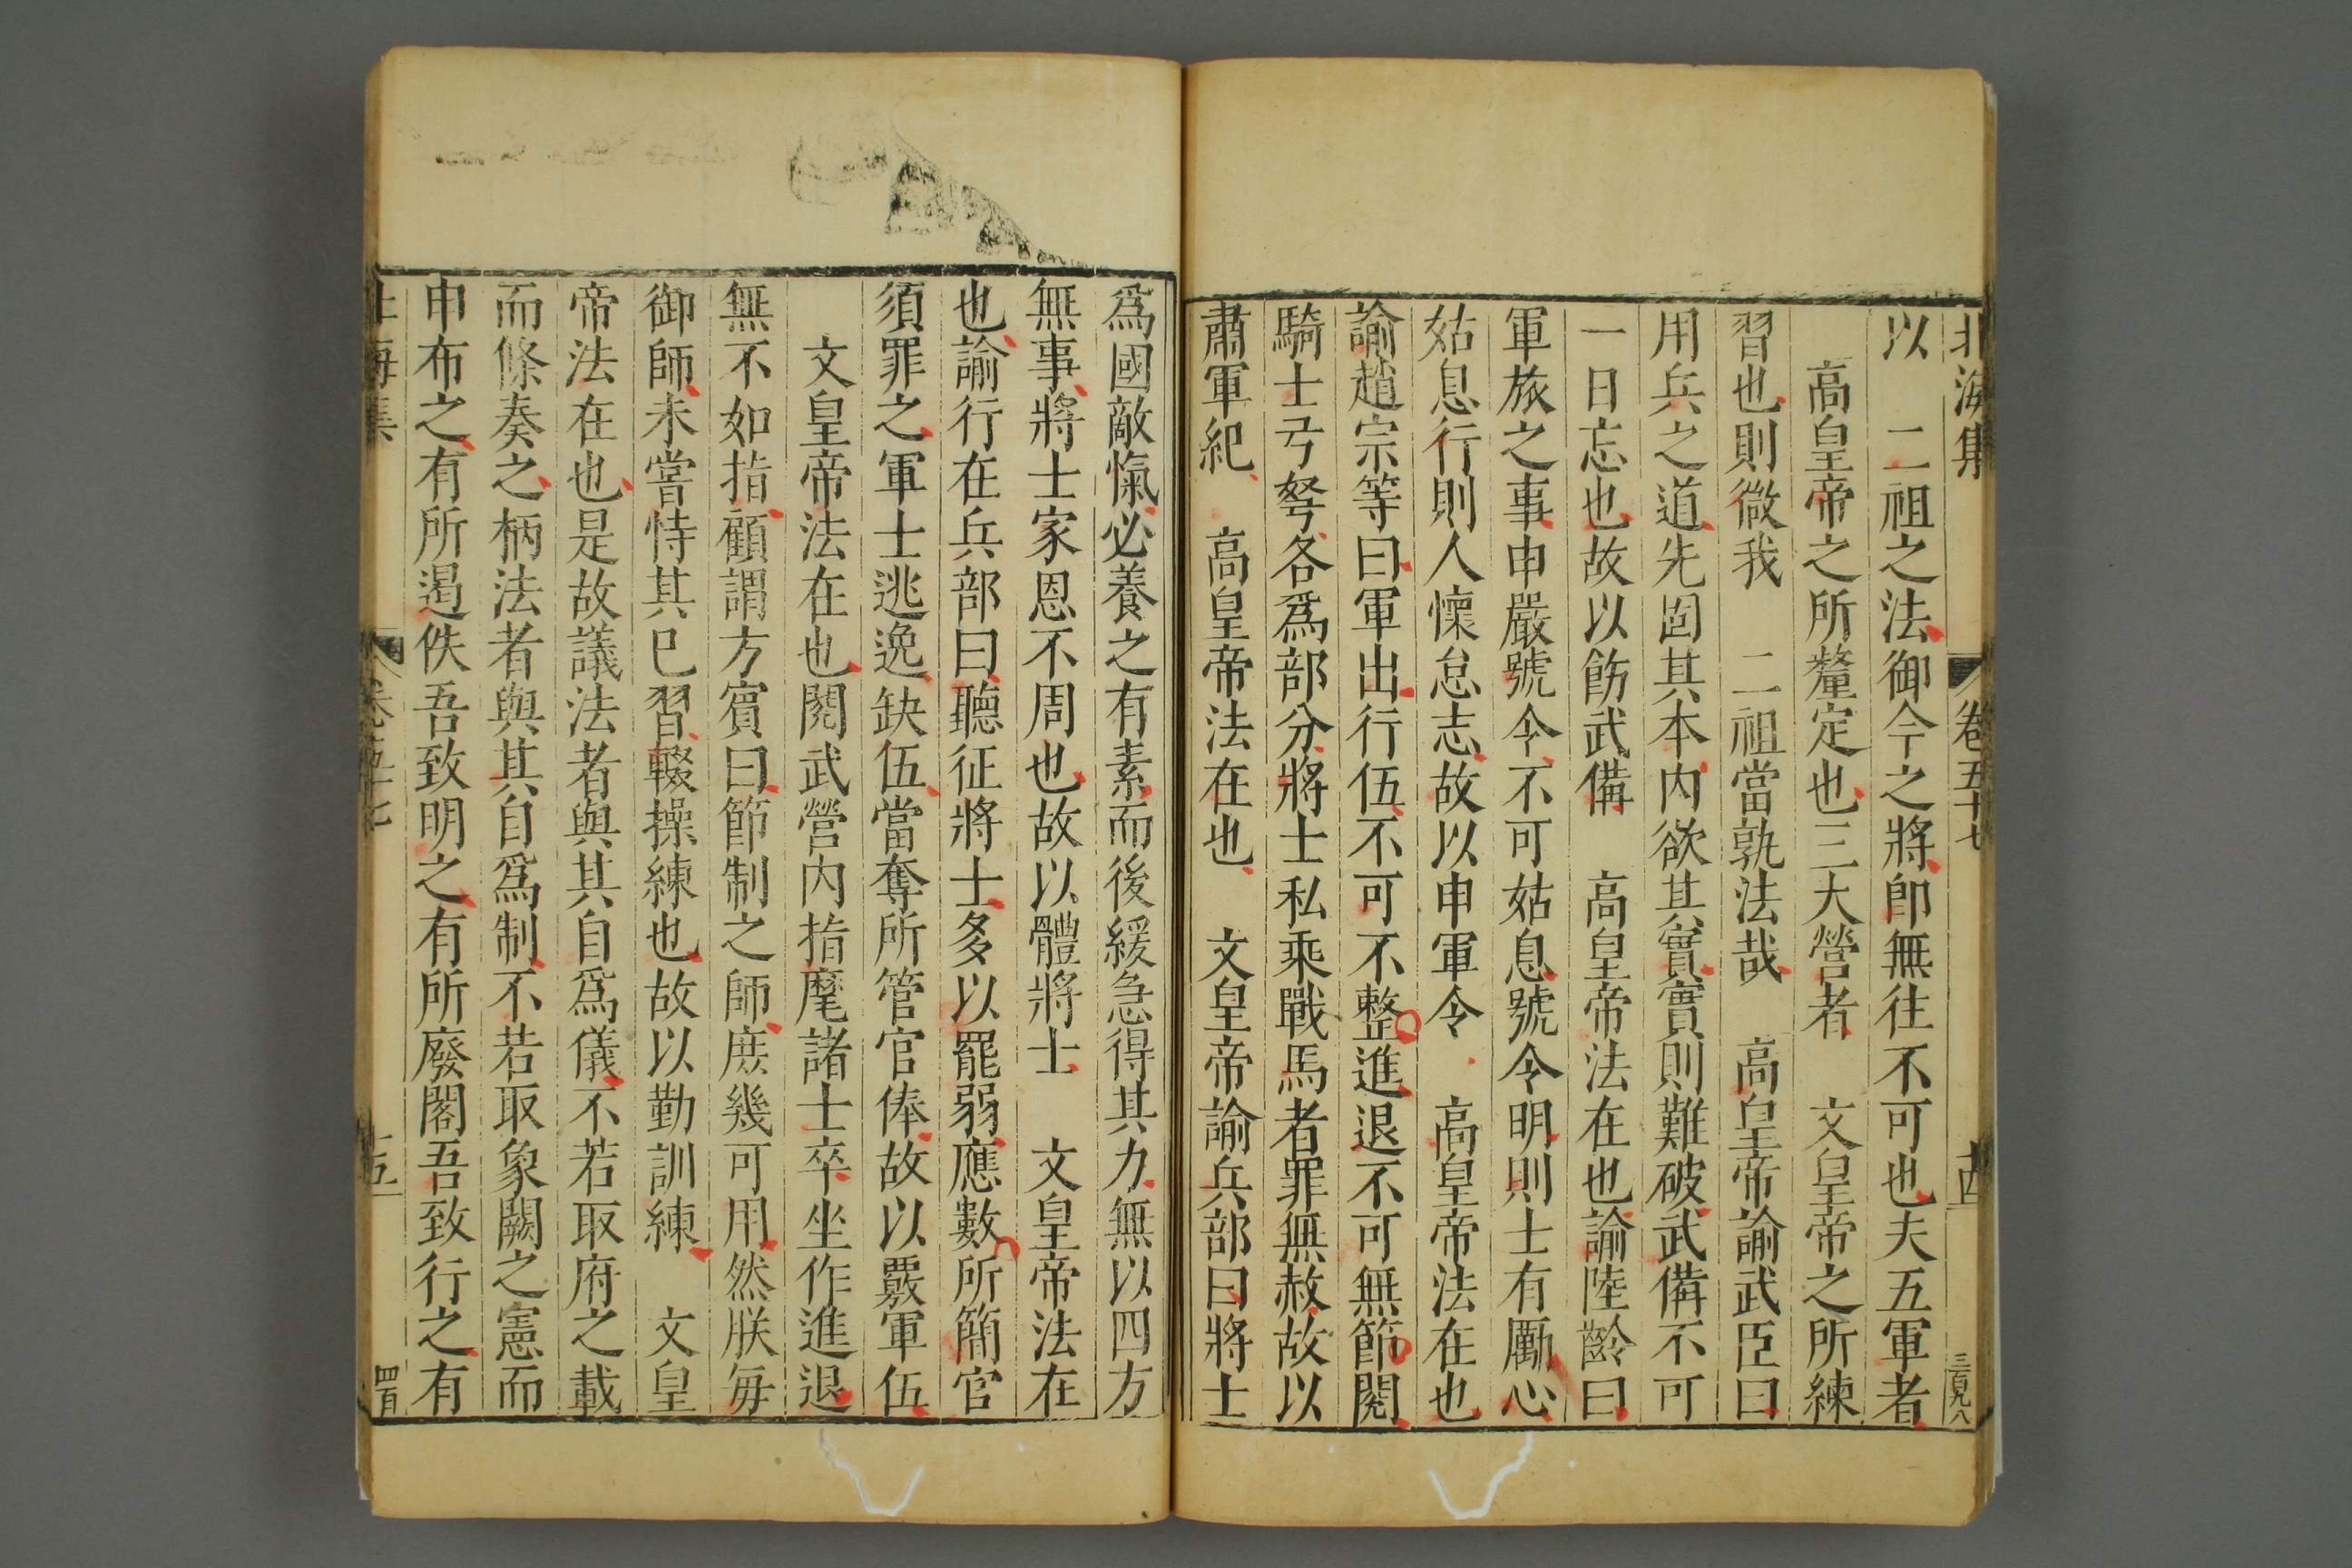 北海集 卷五十七 十四 三百九八
以 二祖之法御今之將卽無往不可也夫五軍者
高皇帝之所釐定也三大營者 文皇帝之所練
習也則微我 二祖當孰法哉 高皇帝諭武臣曰
用兵之道先固其本內欲其實實則難破武備不可
一日忘也故以飭武備 高皇帝法在也諭陸齡曰
軍旅之事申嚴號令不可姑息號令明則士有勵心
姑息行則人懷怠志故以申軍令 高皇帝法在也
諭趙宗等曰軍出行伍不可不整進退不可無節閱
騎士弓弩各爲部分將士私乘戰馬者罪無赦故以
肅軍紀 高皇帝法在也 文皇帝諭兵部曰將士
爲國敵愾必養之有素而後緩急得其力無以四方
無事將士家恩不周也故以體將士 文皇帝法在
也諭行在兵部曰聽征將士多以罷弱應數所簡官
須罪之軍士逃逸缺伍當奪所管官俸故以覈軍伍
文皇帝法在也閱武營內指麾諸士卒坐作進退
無不如指顧謂方賓曰節制之師庶幾可用然朕每
御師未嘗恃其已習輟操練也故以勤訓練 文皇
帝法在也是故議法者與其自爲儀不若取府之載
而條奏之柄法者與其自爲制不若取象闕之憲而
申布之有所遏佚吾致明之有所廢閣吾致行之有
北海集 卷五十七 十五 四百